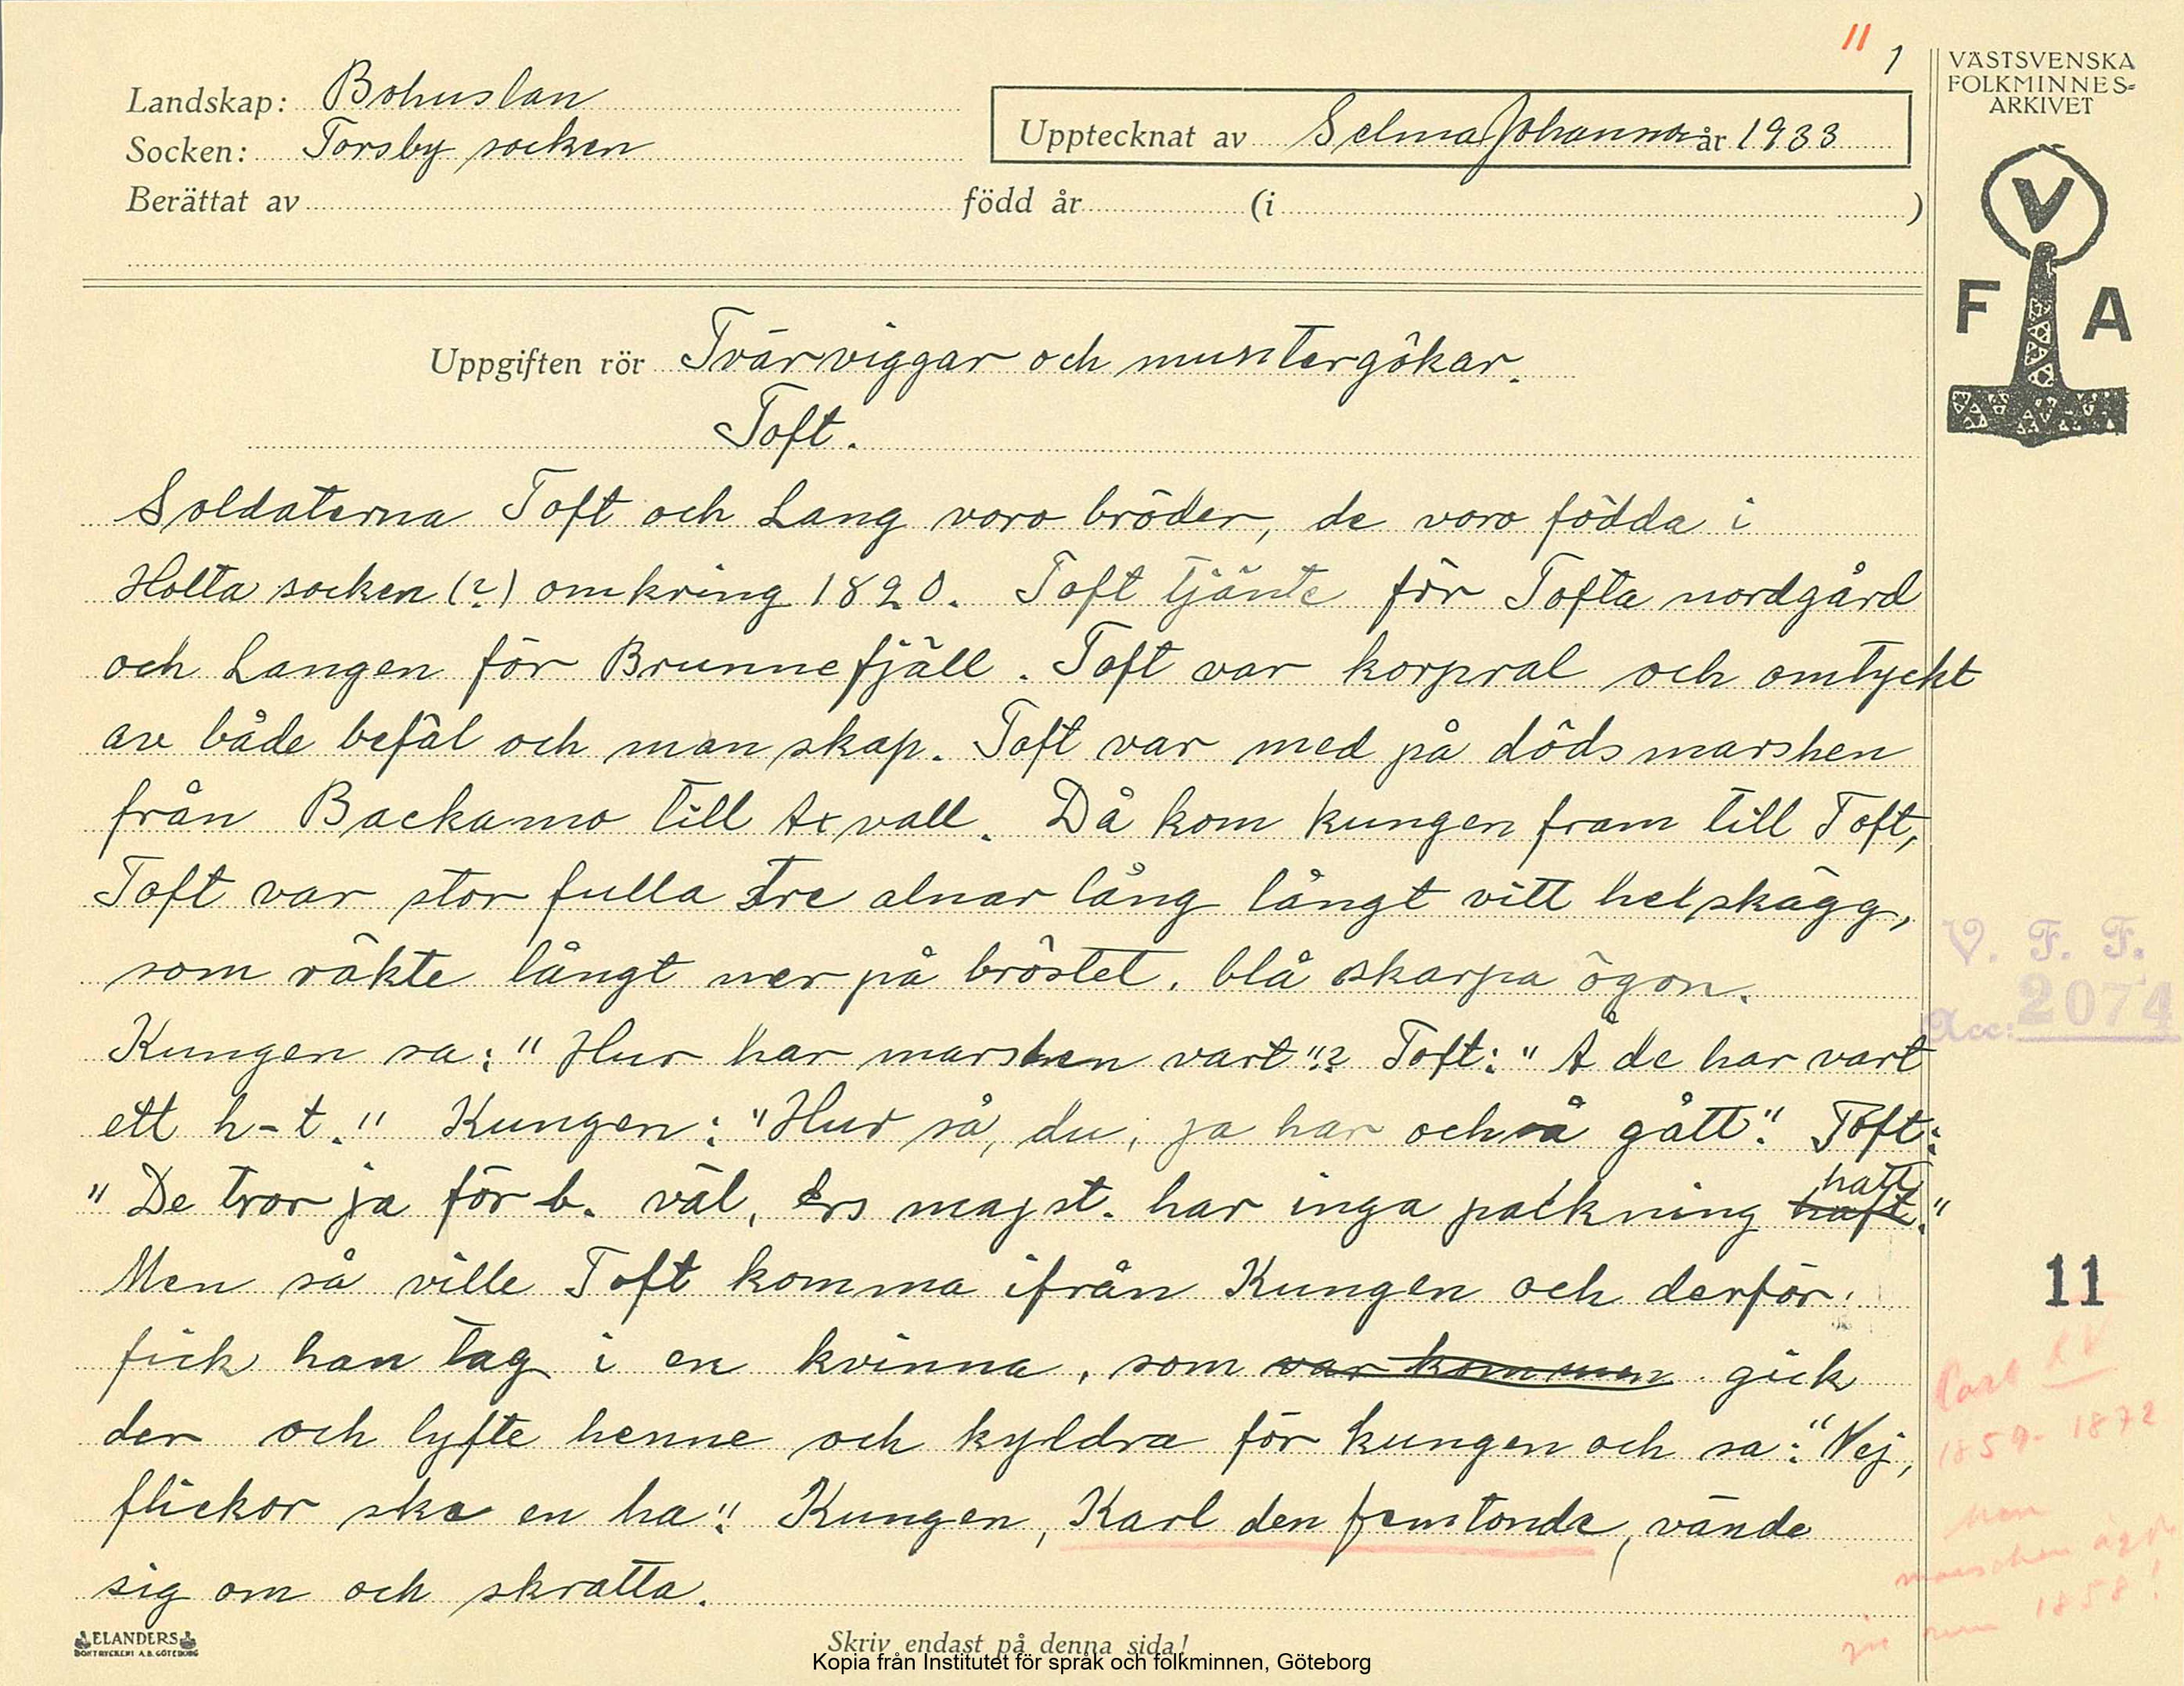 11
1
VÄSTSVENSKA
FOLKMINNES-
ARKIVET
Landskap: Bohuslan
Socken: Torsby socken
Upptecknat av Selma Johanna år 1933
Berättat av född år (i )
V
F A
Uppgiften rör Tvärviggar och muntergökar.
Toft.
Soldaterna Toft och Lang voro bröder, de voro födda i
Holta socken (?) omkring 1820. Toft tjänte för Tofta nordgård
och Langen för Brunnefjäll. Toft var korpral och omtyckt
av både befäl och manskap. Toft var med på dödsmarshen
från Backamo till Axvall. Då kom kungen fram till Toft,
Toft var stor fulla tre alnar lång långt vitt helskägg,
som räkte långt ner på bröstet, blå skarpa ögon.
V. F. F.
Acc: 2074
Kungen sa: "Hur har marshen vart"? Toft: "Å de har vart
ett h-t." Kungen: "Hur så, du, ja har också gått." Toft:
"De tror ja för b. väl, Ers majst. har inga packning haft hatt."
Men så ville Toft komma ifrån Kungen och derför
11
fick han tag i en kvinna, som var kommen gick
der och lyfte henne och kyldra för kungen och sa: "Nej,
flickor ska en ha"! Kungen, Karl den femtonde, vände
sig om och skratta.
Karl XV
1859-1872
men
marschen ägde
rum 1858!
ELANDERS
BOKTRYCKERI A.B. GÖTEBORG
Skriv endast på denna sida!
Kopia från Institutet för språk och folkminnen, Göteborg